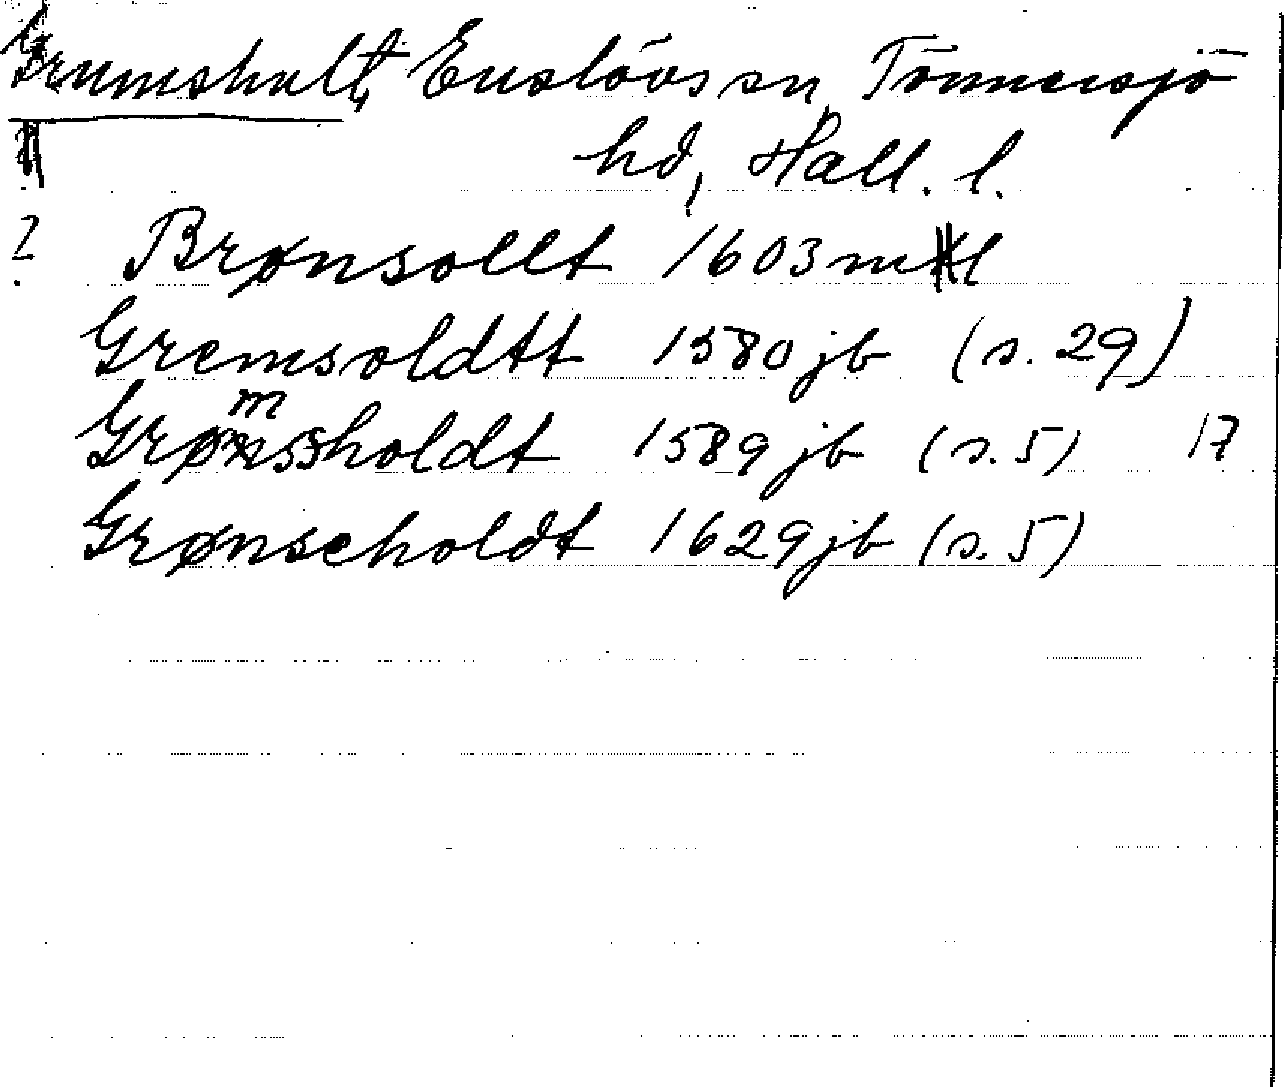 Grumshult, Enslövs sn, Tönnersjö
hd, Hall. l.
? Brønsollt 1603 ml
Gremsoldtt 1580 jb (s. 29)
Grømssholdt 1589 jb (s. 5) 17
Grønscholdt 1629 jb (s. 5)